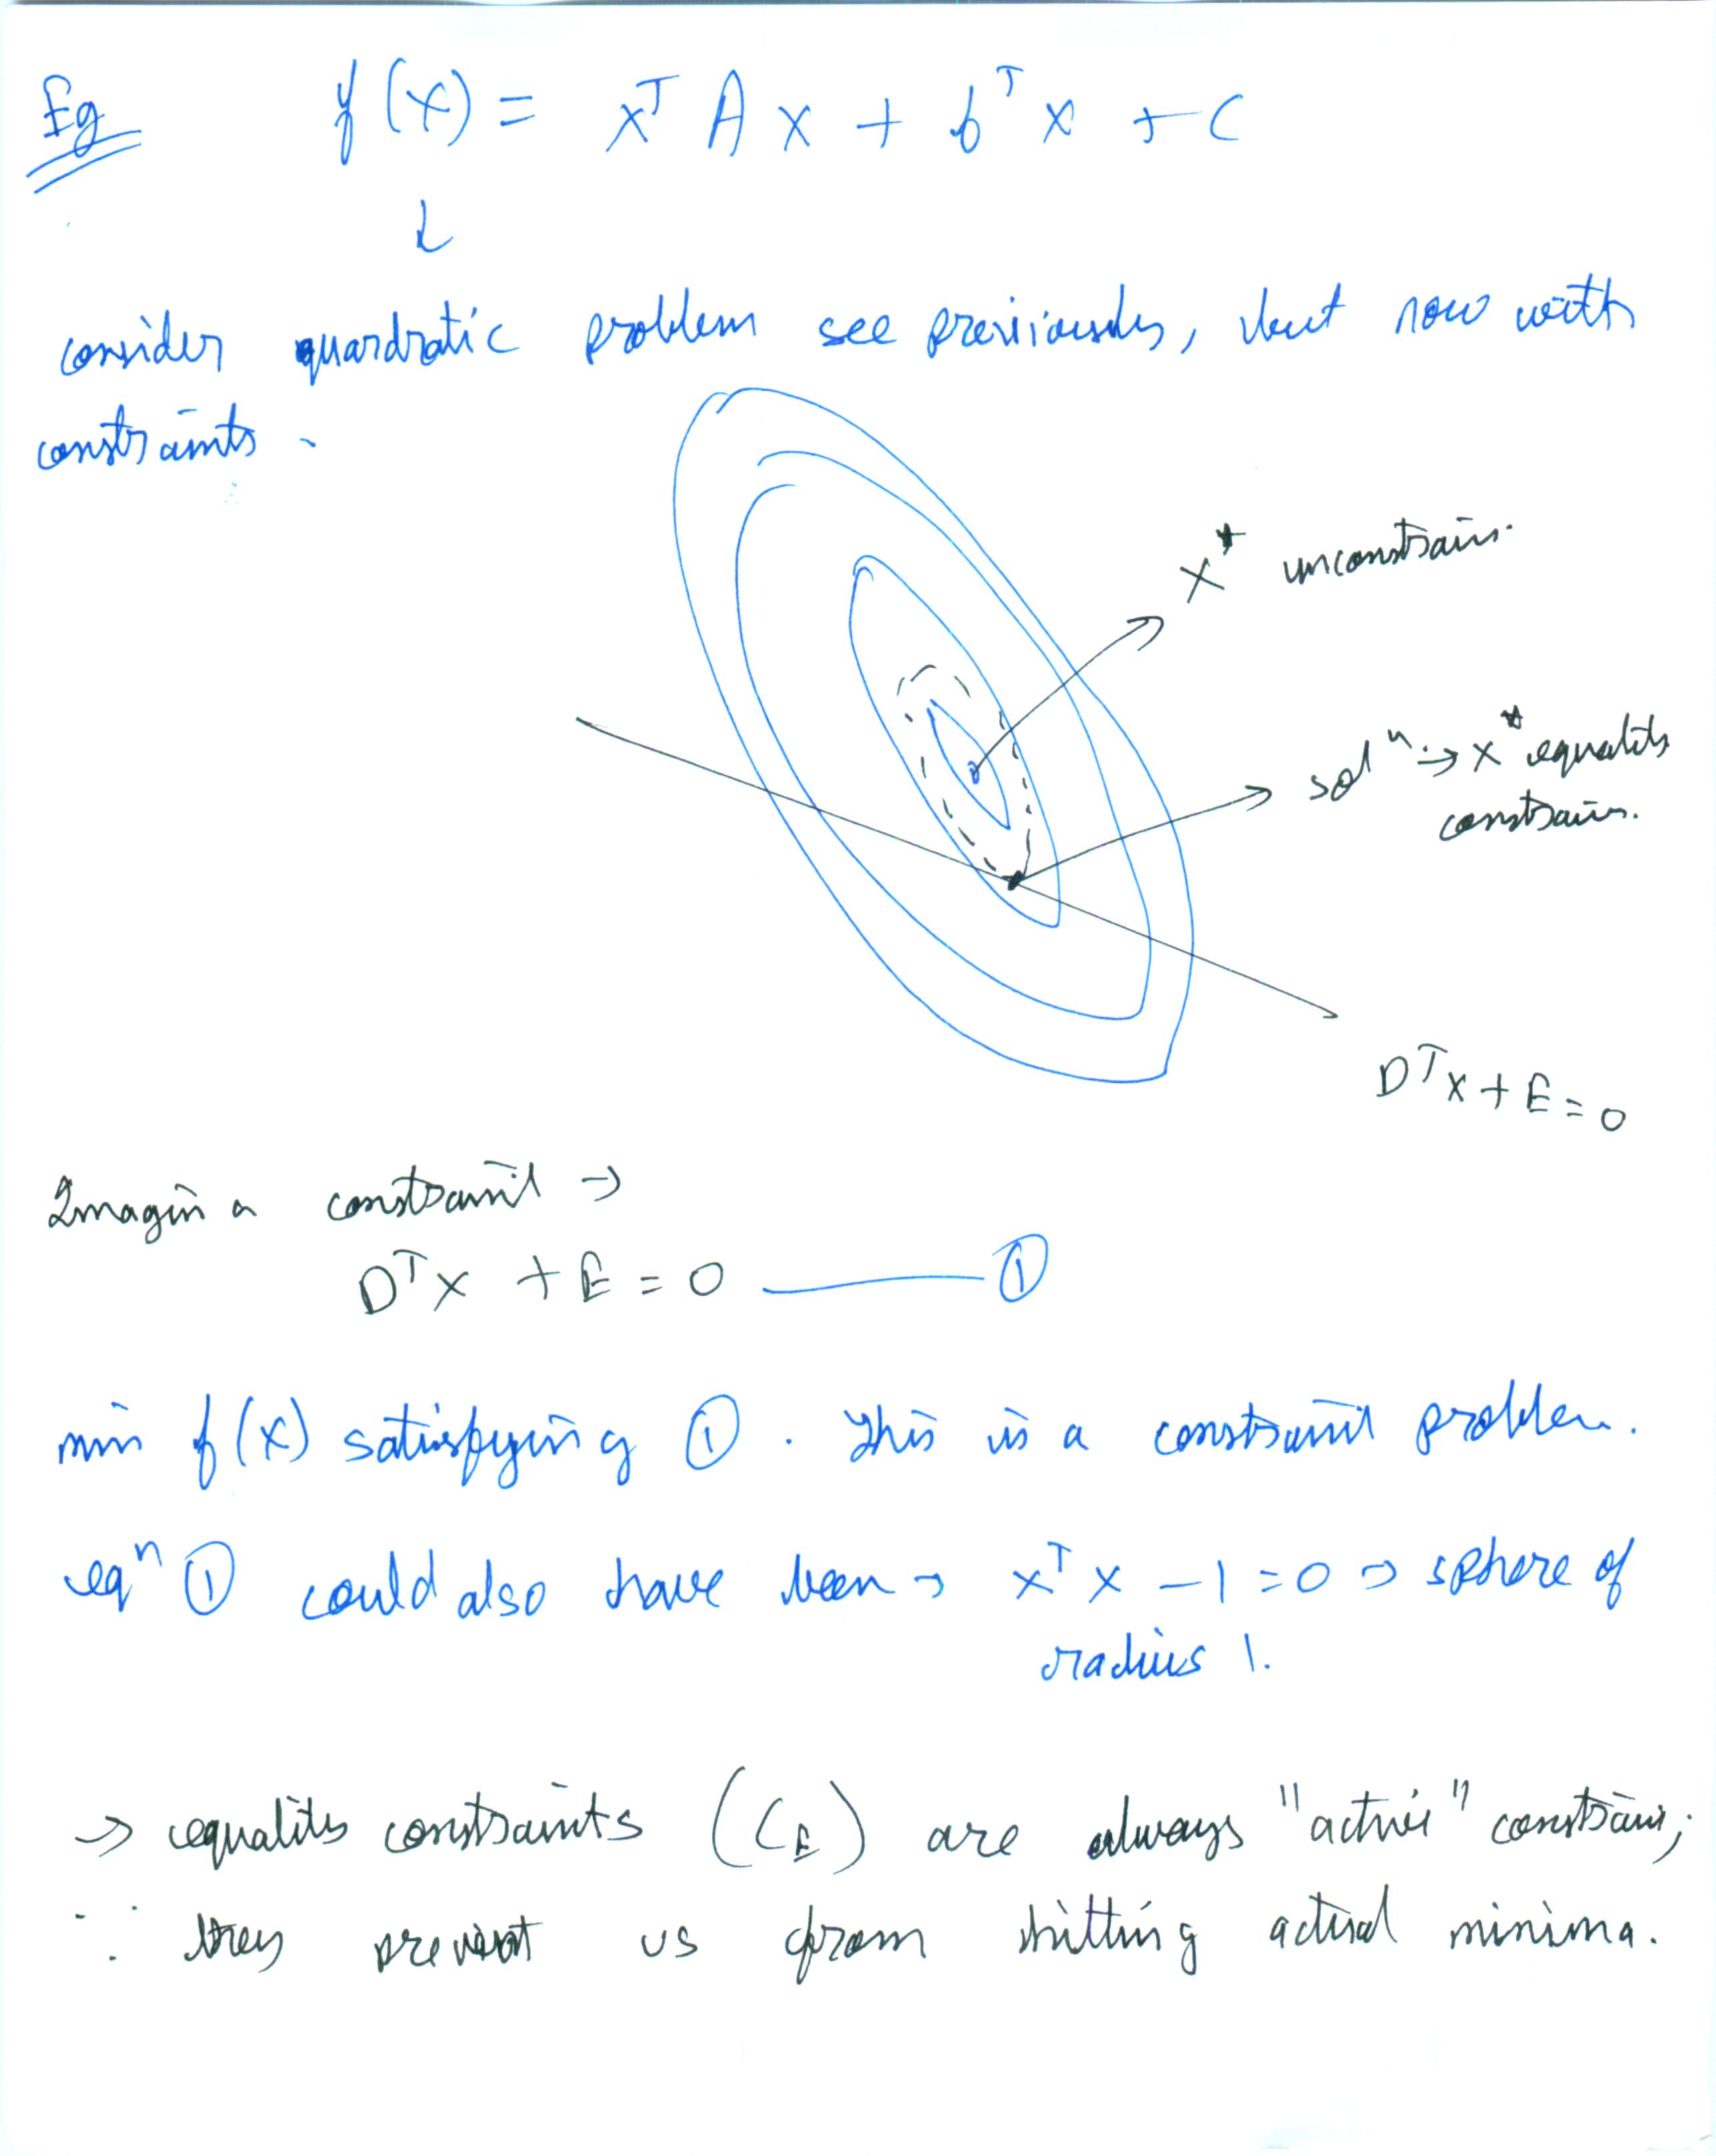 Eg f(x) = x^T A x + b^T x + C
↓
consider quardratic problem see previously, but now with
constraints.
x* unconstrain.
sol^n → x* equality
constrain.
D^T x + E = 0
Imagin a constraint →
D^T x + E = 0 —— ①
min f(x) satisfying ①. This is a constraint problem.
eq^n ① could also have been → x^T x - 1 = 0 → sphere of
radius 1.
→ equality constraints (C_E) are always "active" constrain;
∵ they prevent us from hitting actual minima.